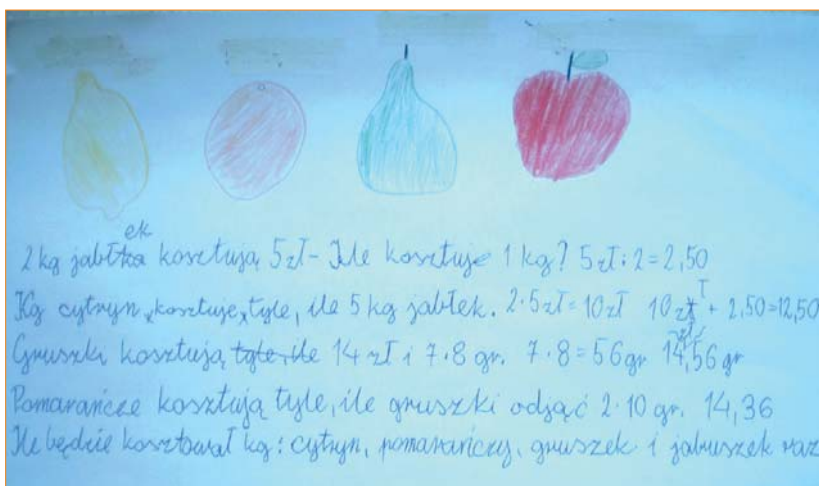 ek
2 kg jabłka kosztują 5 zł - Ile kosztuje 1 kg? 5 zł : 2 = 2,50
Kg cytryn kosztuje tyle, ile 5 kg jabłek. 2·5 zł = 10 zł 10 zł + 2,50 = 12,50
Gruszki kosztują tyle, ile 14 zł i 7·8 gr. 7·8 = 56 gr 14,56 gr
Pomarańcze kosztują tyle, ile gruszki odjąć 2·10 gr. 14,36
Ile będzie kosztował kg: cytryn, pomarańczy, gruszek i jabłuszek raz